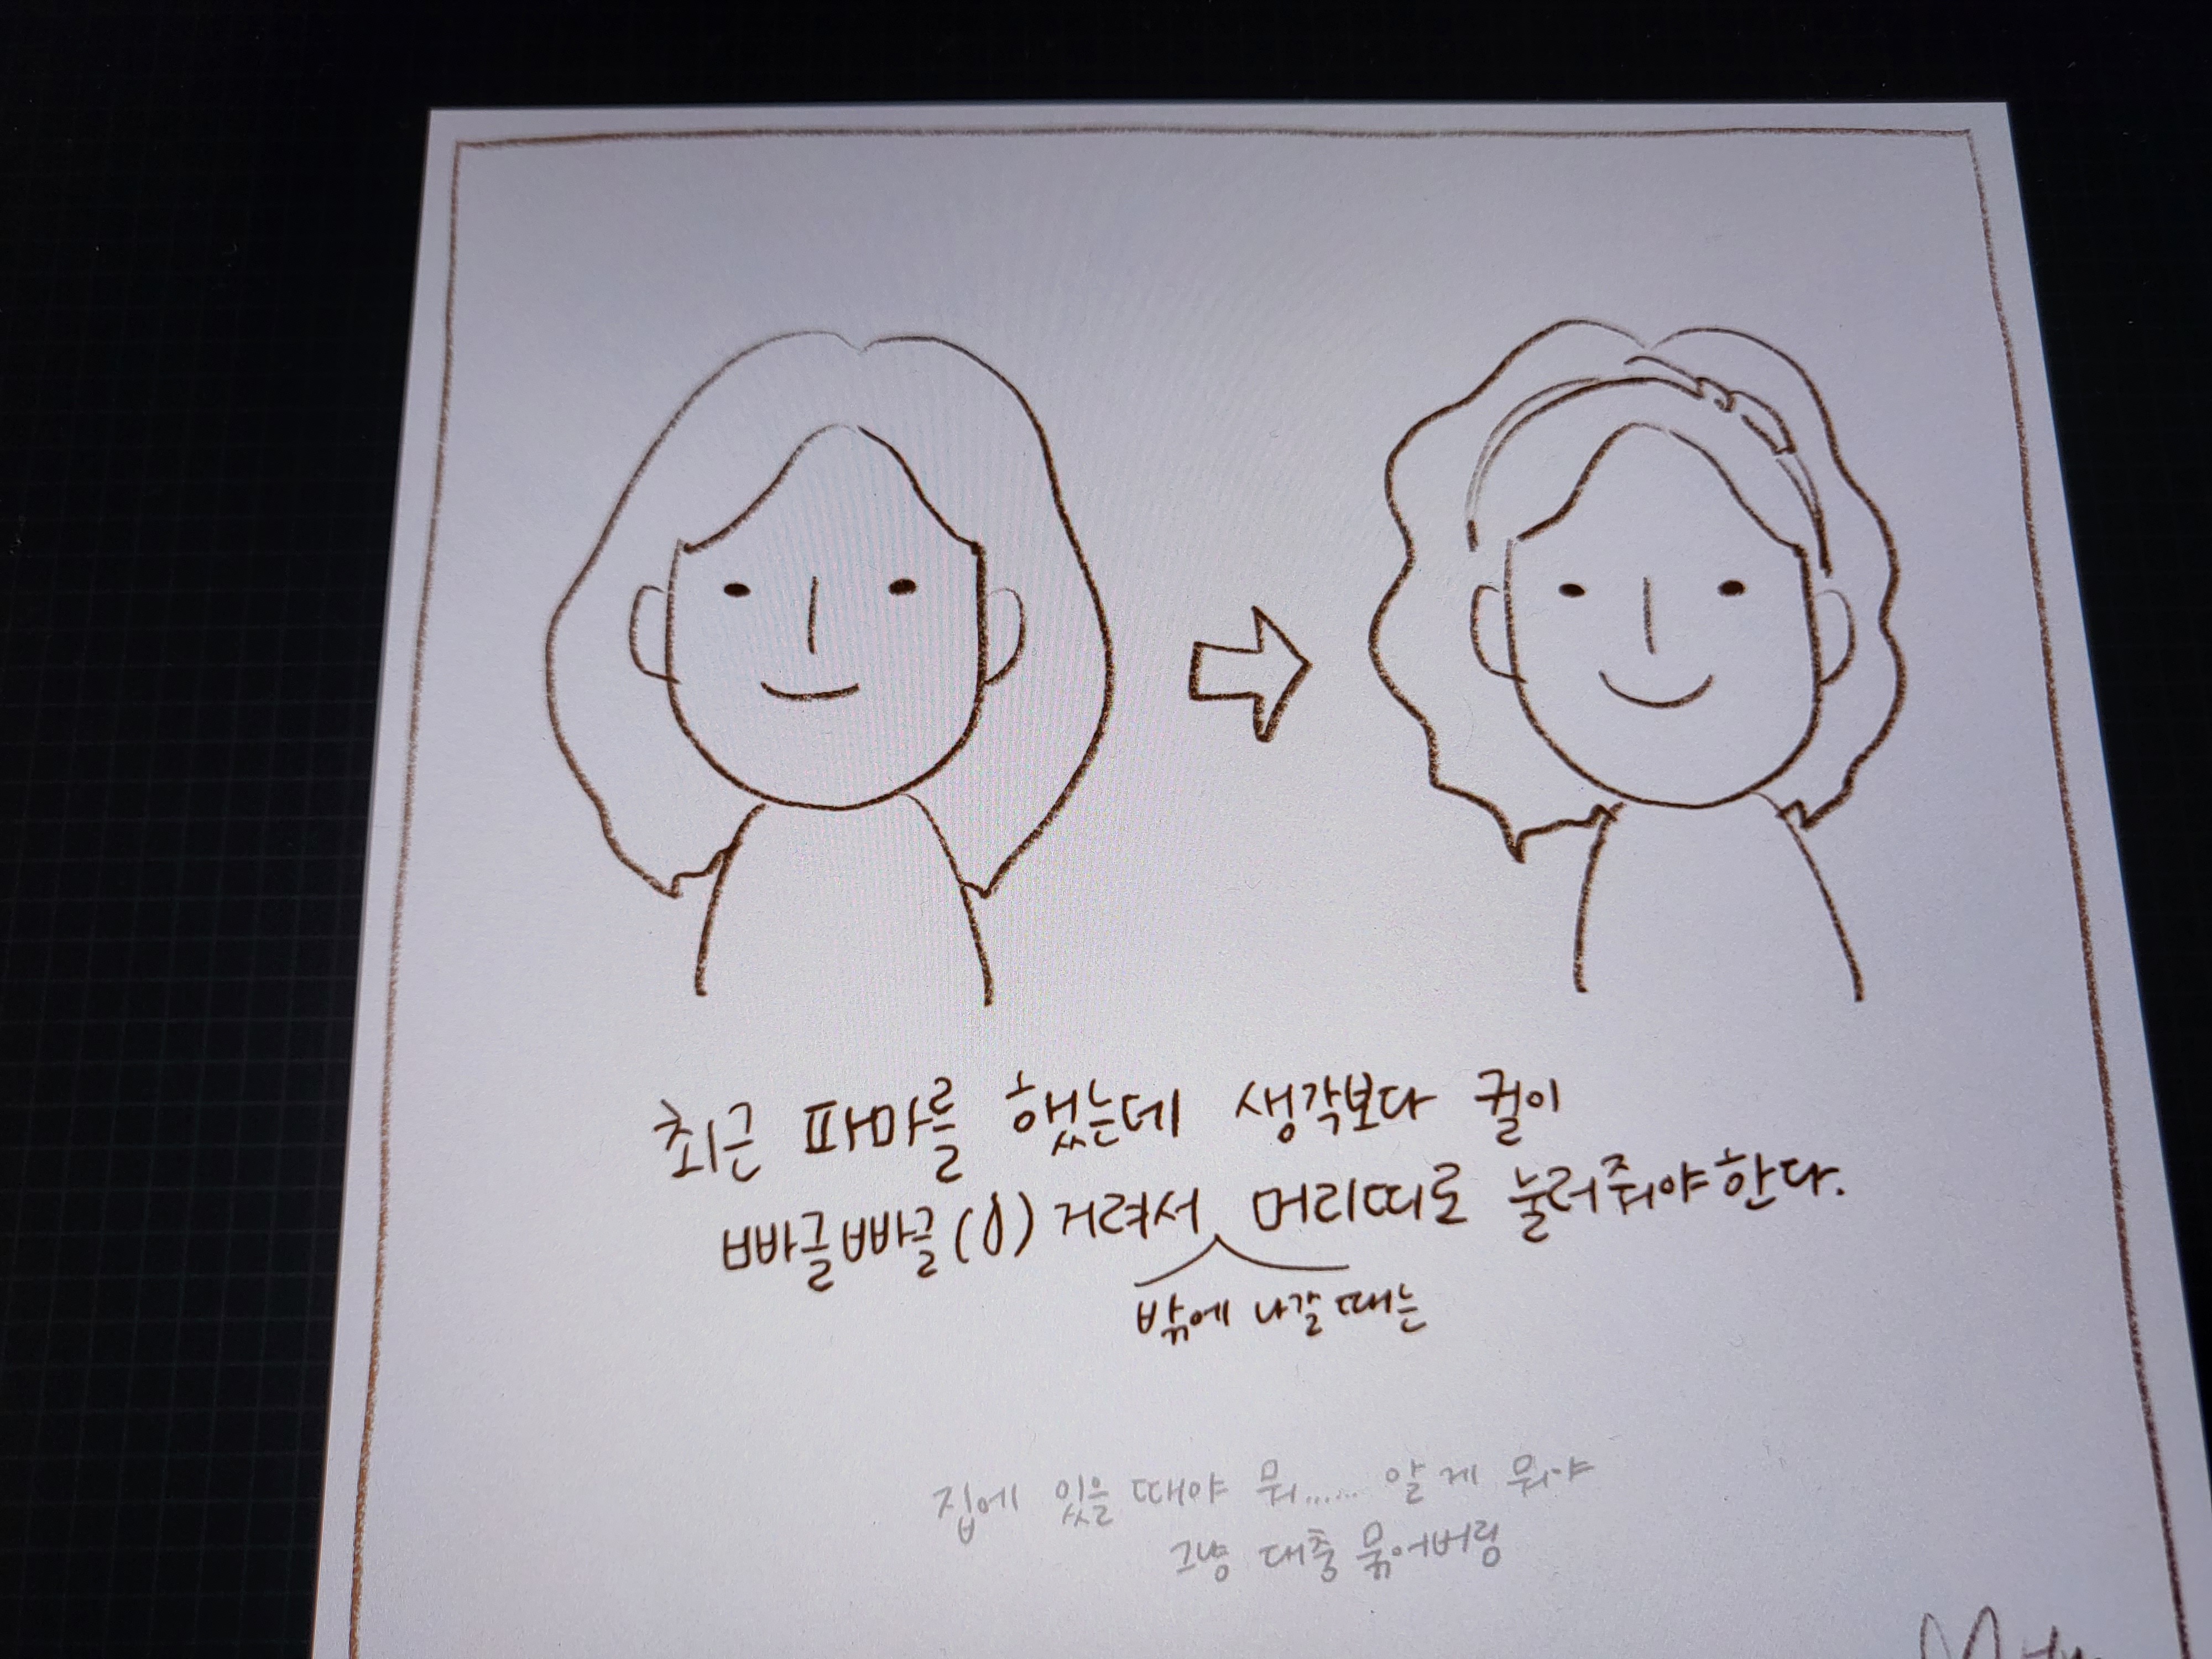 최근 파마를 했는데 생각보다 컬이
빠글빠글(?)거려서 머리띠로 눌러줘야한다.
밖에 나갈 때는
집에 있을 때야 뭐...... 알 게 뭐야
그냥 대충 묶어버링